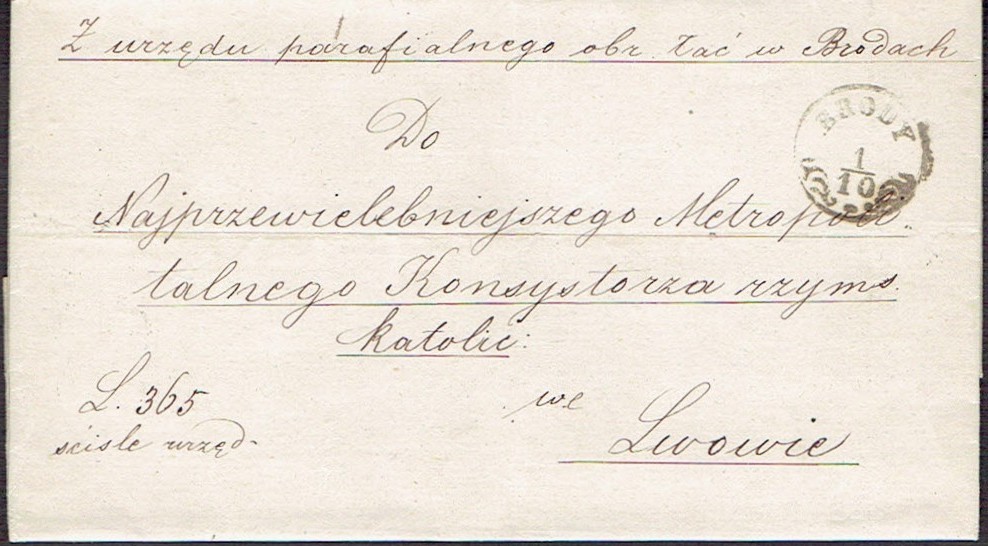 Z urzędu parafialnego obr. łać w Brodach
BRODY
1
10
Do
Najprzewielebniejszego Metropoli-
talnego Konsystorza rzyms.
katolic:
L. 365
ściśle urzęd-
we
Lwowie